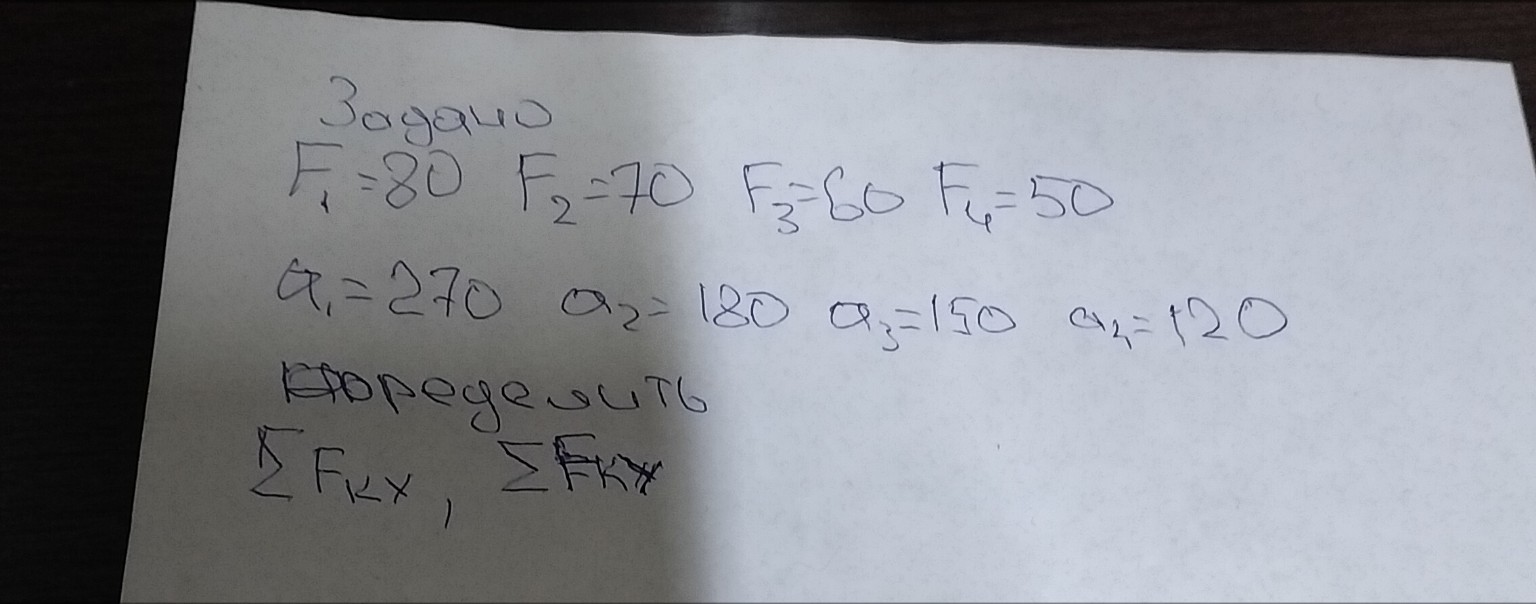 Задано
F₁=80 F₂=70 F₃=60 F₄=50
a₁=270 a₂=180 a₃=150 a₄=120
определить
ΣFкх, ΣFкх